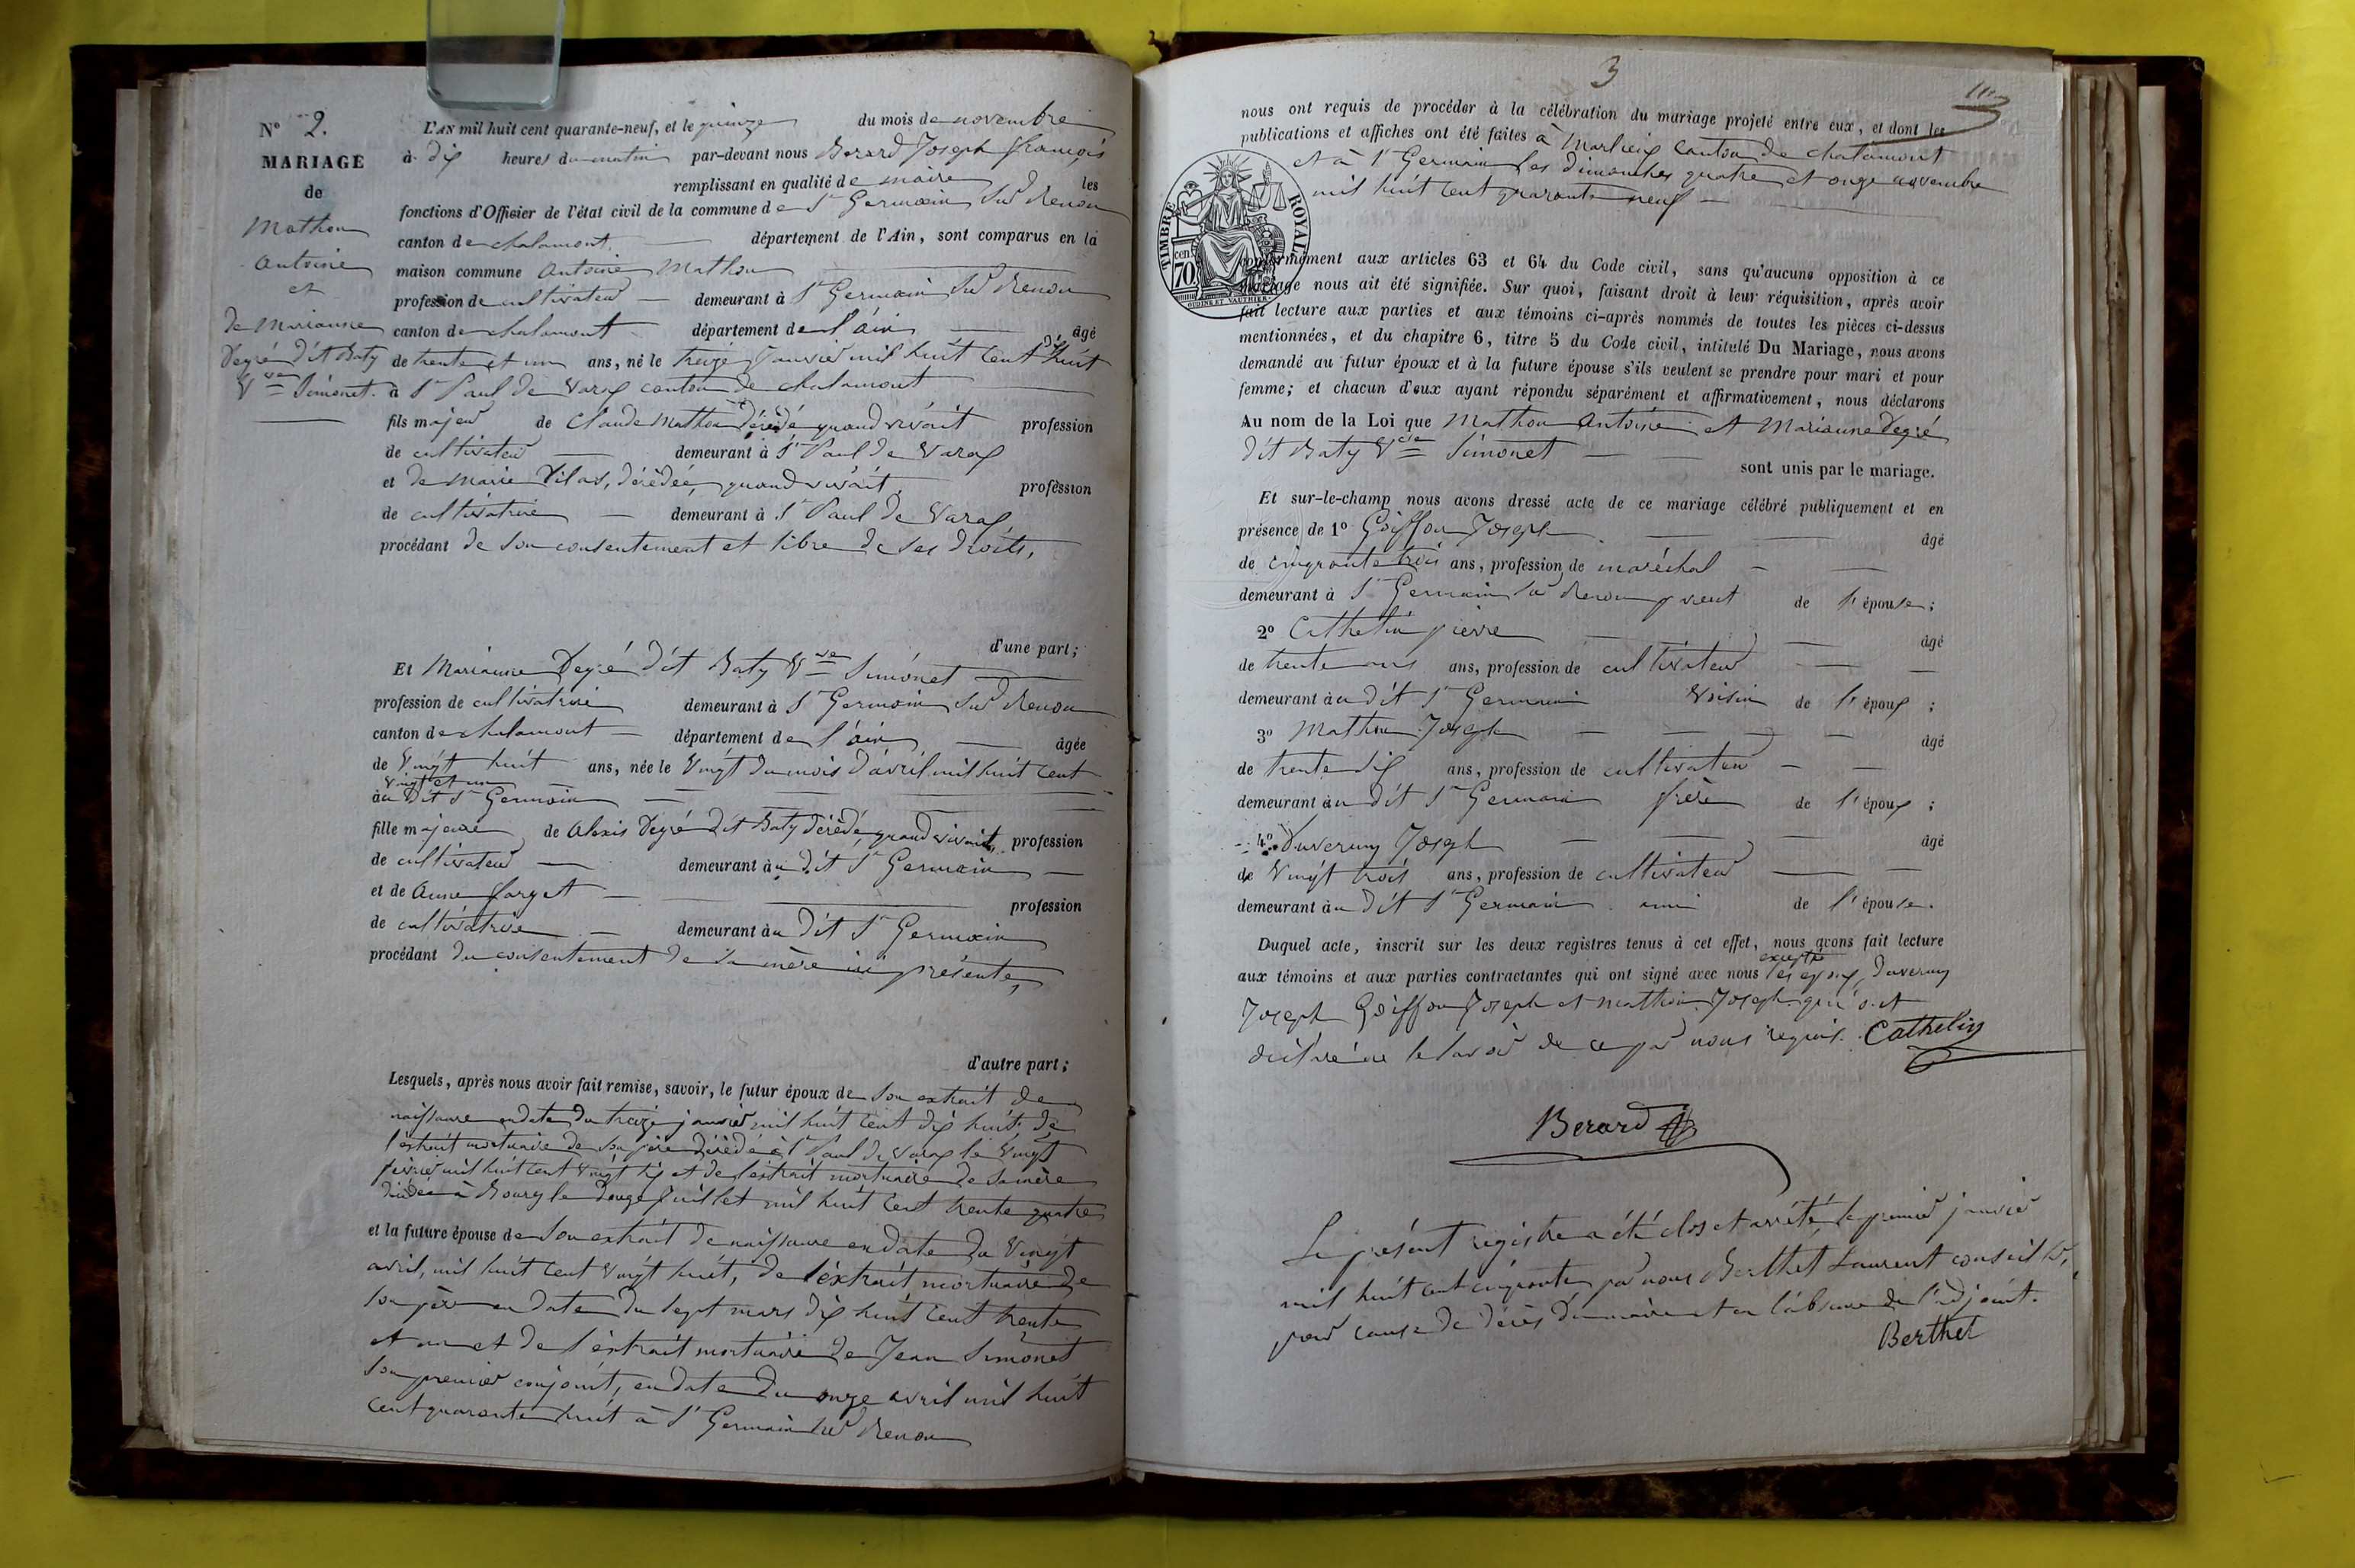 N° 2.
MARIAGE
de
Mathon
Antoine
et
de Marianne
Degré dit Baty
Vve Simonet.
L'AN mil huit cent quarante-neuf, et le quinze du mois de novembre
à dix heures du matin par-devant nous Berard Joseph françois
remplissant en qualité de maire les
fonctions d'Officier de l'état civil de la commune de St Germain sur Renon
canton de chalamont département de l'Ain, sont comparus en la
maison commune Antoine Mathon
profession de cultivateur demeurant à St Germain sur Renon
canton de chalamont département de l'ain âgé
de trente et un ans, né le treize Janvier mil huit cent dix huit
à St Paul de Varax canton de chalamont
fils majeur de Claude Mathon décédé quand vivait profession
de cultivateur demeurant à St Paul de Varax
et de Marie Vilas, décédée, quand vivait profession
de cultivatrice demeurant à St Paul de Varax,
procédant de son consentement et libre de ses droits,
d'une part;
Et Marianne Degré dit Baty Vve Simonet
profession de cultivatrice demeurant à St Germain sur Renon
canton de chalamont département de l'ain âgée
de vingt huit ans, née le vingt du mois d'avril mil huit cent
vingt et un
au dit St Germain
fille majeure de Alexis Degré dit Baty décédé, quand vivait, profession
de cultivateur demeurant au dit St Germain
et de Anne farget profession
de cultivatrice demeurant au dit St Germain
procédant du consentement de sa mère ici présente,
d'autre part;
Lesquels, après nous avoir fait remise, savoir, le futur époux de son extrait de
naissance en date du treize janvier mil huit cent dix huit de
l'extrait mortuaire de son père décédé à St Paul de Varax le vingt
février mil huit cent vingt six et de l'extrait mortuaire de sa mère
décédée à Bourg le douze Juillet mil huit cent trente quatre
et la future épouse de son extrait de naissance en date du vingt
avril, mil huit cent vingt huit, de l'extrait mortuaire de
son père en date du sept mars dix huit cent trente
et un et de l'extrait mortuaire de Jean Simonet
son premier conjoint, en date du onze avril mil huit
cent quarante huit à St Germain sur Renon
3
nous ont requis de procéder à la célébration du mariage projeté entre eux, et dont les
publications et affiches ont été faites à Marlieux canton de chalamont
et à St Germain les dimanches quatre et onze novembre
mil huit cent quarante neuf
TIMBRE ROYAL
70 cen
conformément aux articles 63 et 64 du Code civil, sans qu'aucune opposition à ce
mariage nous ait été signifiée. Sur quoi, faisant droit à leur réquisition, après avoir
fait lecture aux parties et aux témoins ci-après nommés de toutes les pièces ci-dessus
mentionnées, et du chapitre 6, titre 5 du Code civil, intitulé Du Mariage, nous avons
demandé au futur époux et à la future épouse s'ils veulent se prendre pour mari et pour
femme; et chacun d'eux ayant répondu séparément et affirmativement, nous déclarons
Au nom de la Loi que Mathon Antoine et Marianne Degré
dit Baty Vve Simonet
sont unis par le mariage.
Et sur-le-champ nous avons dressé acte de ce mariage célébré publiquement et en
présence de 1° Goiffon Joseph âgé
de cinquante trois ans, profession de maréchal
demeurant à St Germain sur Renon parent de l'épouse;
2° Cathelin pierre âgé
de trente ans ans, profession de cultivateur
demeurant au dit St Germain voisin de l'époux;
3° Mathon Joseph âgé
de trente six ans, profession de cultivateur
demeurant au dit St Germain frère de l'époux;
4° Duverney Joseph âgé
de vingt trois ans, profession de cultivateur
demeurant au dit St Germain ami de l'épouse.
Duquel acte, inscrit sur les deux registres tenus à cet effet, nous avons fait lecture
excepté
aux témoins et aux parties contractantes qui ont signé avec nous les époux, Duverney
Joseph Goiffon Joseph et Mathon Joseph qui ont
déclaré ne le savoir de ce par nous requis. Cathelin
Berard
Le présent registre a été clos et arrêté, le premier janvier
mil huit cent cinquante, par nous Berthet Laurent conseiller,
pour cause de décès du maire et en l'absence de l'adjoint.
Berthet